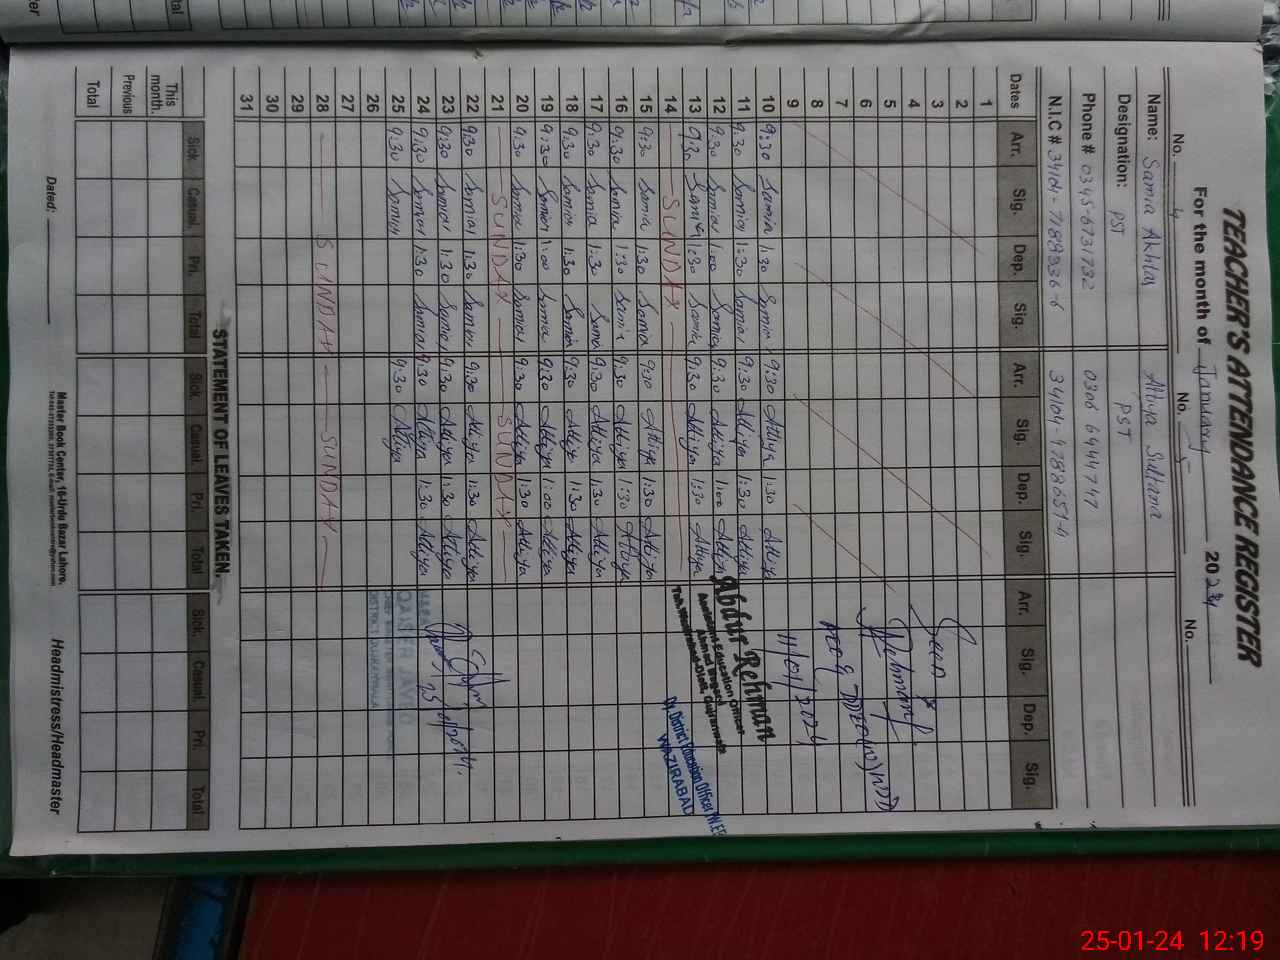 TEACHER'S ATTENDANCE REGISTER
For the month of January 2024
No. 4 No. 5 No.
Name: Samia Akhtar Attiya Sultana
Designation: PST PST
Phone # 0345-6731732 0306 6444747
N.I.C # 34104-7188936-6 34104-4788651-4
Dates Arr. Sig. Dep. Sig. Arr. Sig. Dep. Sig. Arr. Sig. Dep. Sig.
1
2
3 Seen
4
5 Rehman
6
7
8
9 11/01/2024
10 9:30 Samia 1:30 Samia 9:30 Attiya 1:30 Attiya
11 9:30 Samia 1:30 Samia 9:30 Attiya 1:30 Attiya
12 9:30 Samia 1:00 Samia 9:30 Attiya 1:00 Attiya
13 9:30 Samia 1:30 Samia 9:30 Attiya 1:30 Attiya
14 SUNDAY
15 9:30 Samia 1:30 Samia 9:30 Attiya 1:30 Attiya
16 9:30 Samia 1:30 Samia 9:30 Attiya 1:30 Attiya
17 9:30 Samia 1:30 Samia 9:30 Attiya 1:30 Attiya
18 9:30 Samia 1:30 Samia 9:30 Attiya 1:30 Attiya
19 9:30 Samia 1:00 Samia 9:30 Attiya 1:00 Attiya
20 9:30 Samia 1:30 Samia 9:30 Attiya 1:30 Attiya
21 SUNDAY SUNDAY
22 9:30 Samia 1:30 Samia 9:30 Attiya 1:30 Attiya
23 9:30 Samia 1:30 Samia 9:30 Attiya 1:30 Attiya
24 9:30 Samia 1:30 Samia 9:30 Attiya 1:30 Attiya
25 9:30 Samia 9:30 Attiya
26
27
28 SUNDAY SUNDAY
29
30
31
Abdur Rehman
Assistant Education Officer
Dy. District Education Officer
WAZIRABAD
QAISER JAVED
STATEMENT OF LEAVES TAKEN.
Sick. Casual. Pri. Total Sick Casual. Pri. Total Sick. Casual. Pri. Total
This month.
Previous
Total
Dated:
Master Book Center, 16-Urdu Bazar Lahore.
Headmistress/Headmaster
25-01-24 12:19